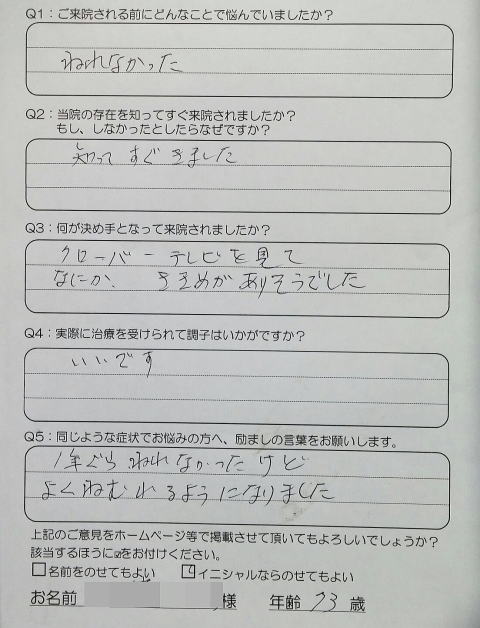 Q1：ご来院される前にどんなことで悩んでいましたか？
ねれなかった
Q2：当院の存在を知ってすぐ来院されましたか？
もし、しなかったとしたらなぜですか？
知って すぐ きました
Q3：何が決め手となって来院されましたか？
クローバーテレビを見て
なにか、ききめがありそうでした
Q4：実際に治療を受けられて調子はいかがですか？
いいです
Q5：同じような症状でお悩みの方へ、励ましの言葉をお願いします。
1年ぐらいねれなかったけど
よくねむれるようになりました
上記のご意見をホームページ等で掲載させて頂いてもよろしいでしょうか？
該当するほうに☑をお付けください。
□名前をのせてもよい ☑イニシャルならのせてもよい
お名前 様 年齢 73 歳